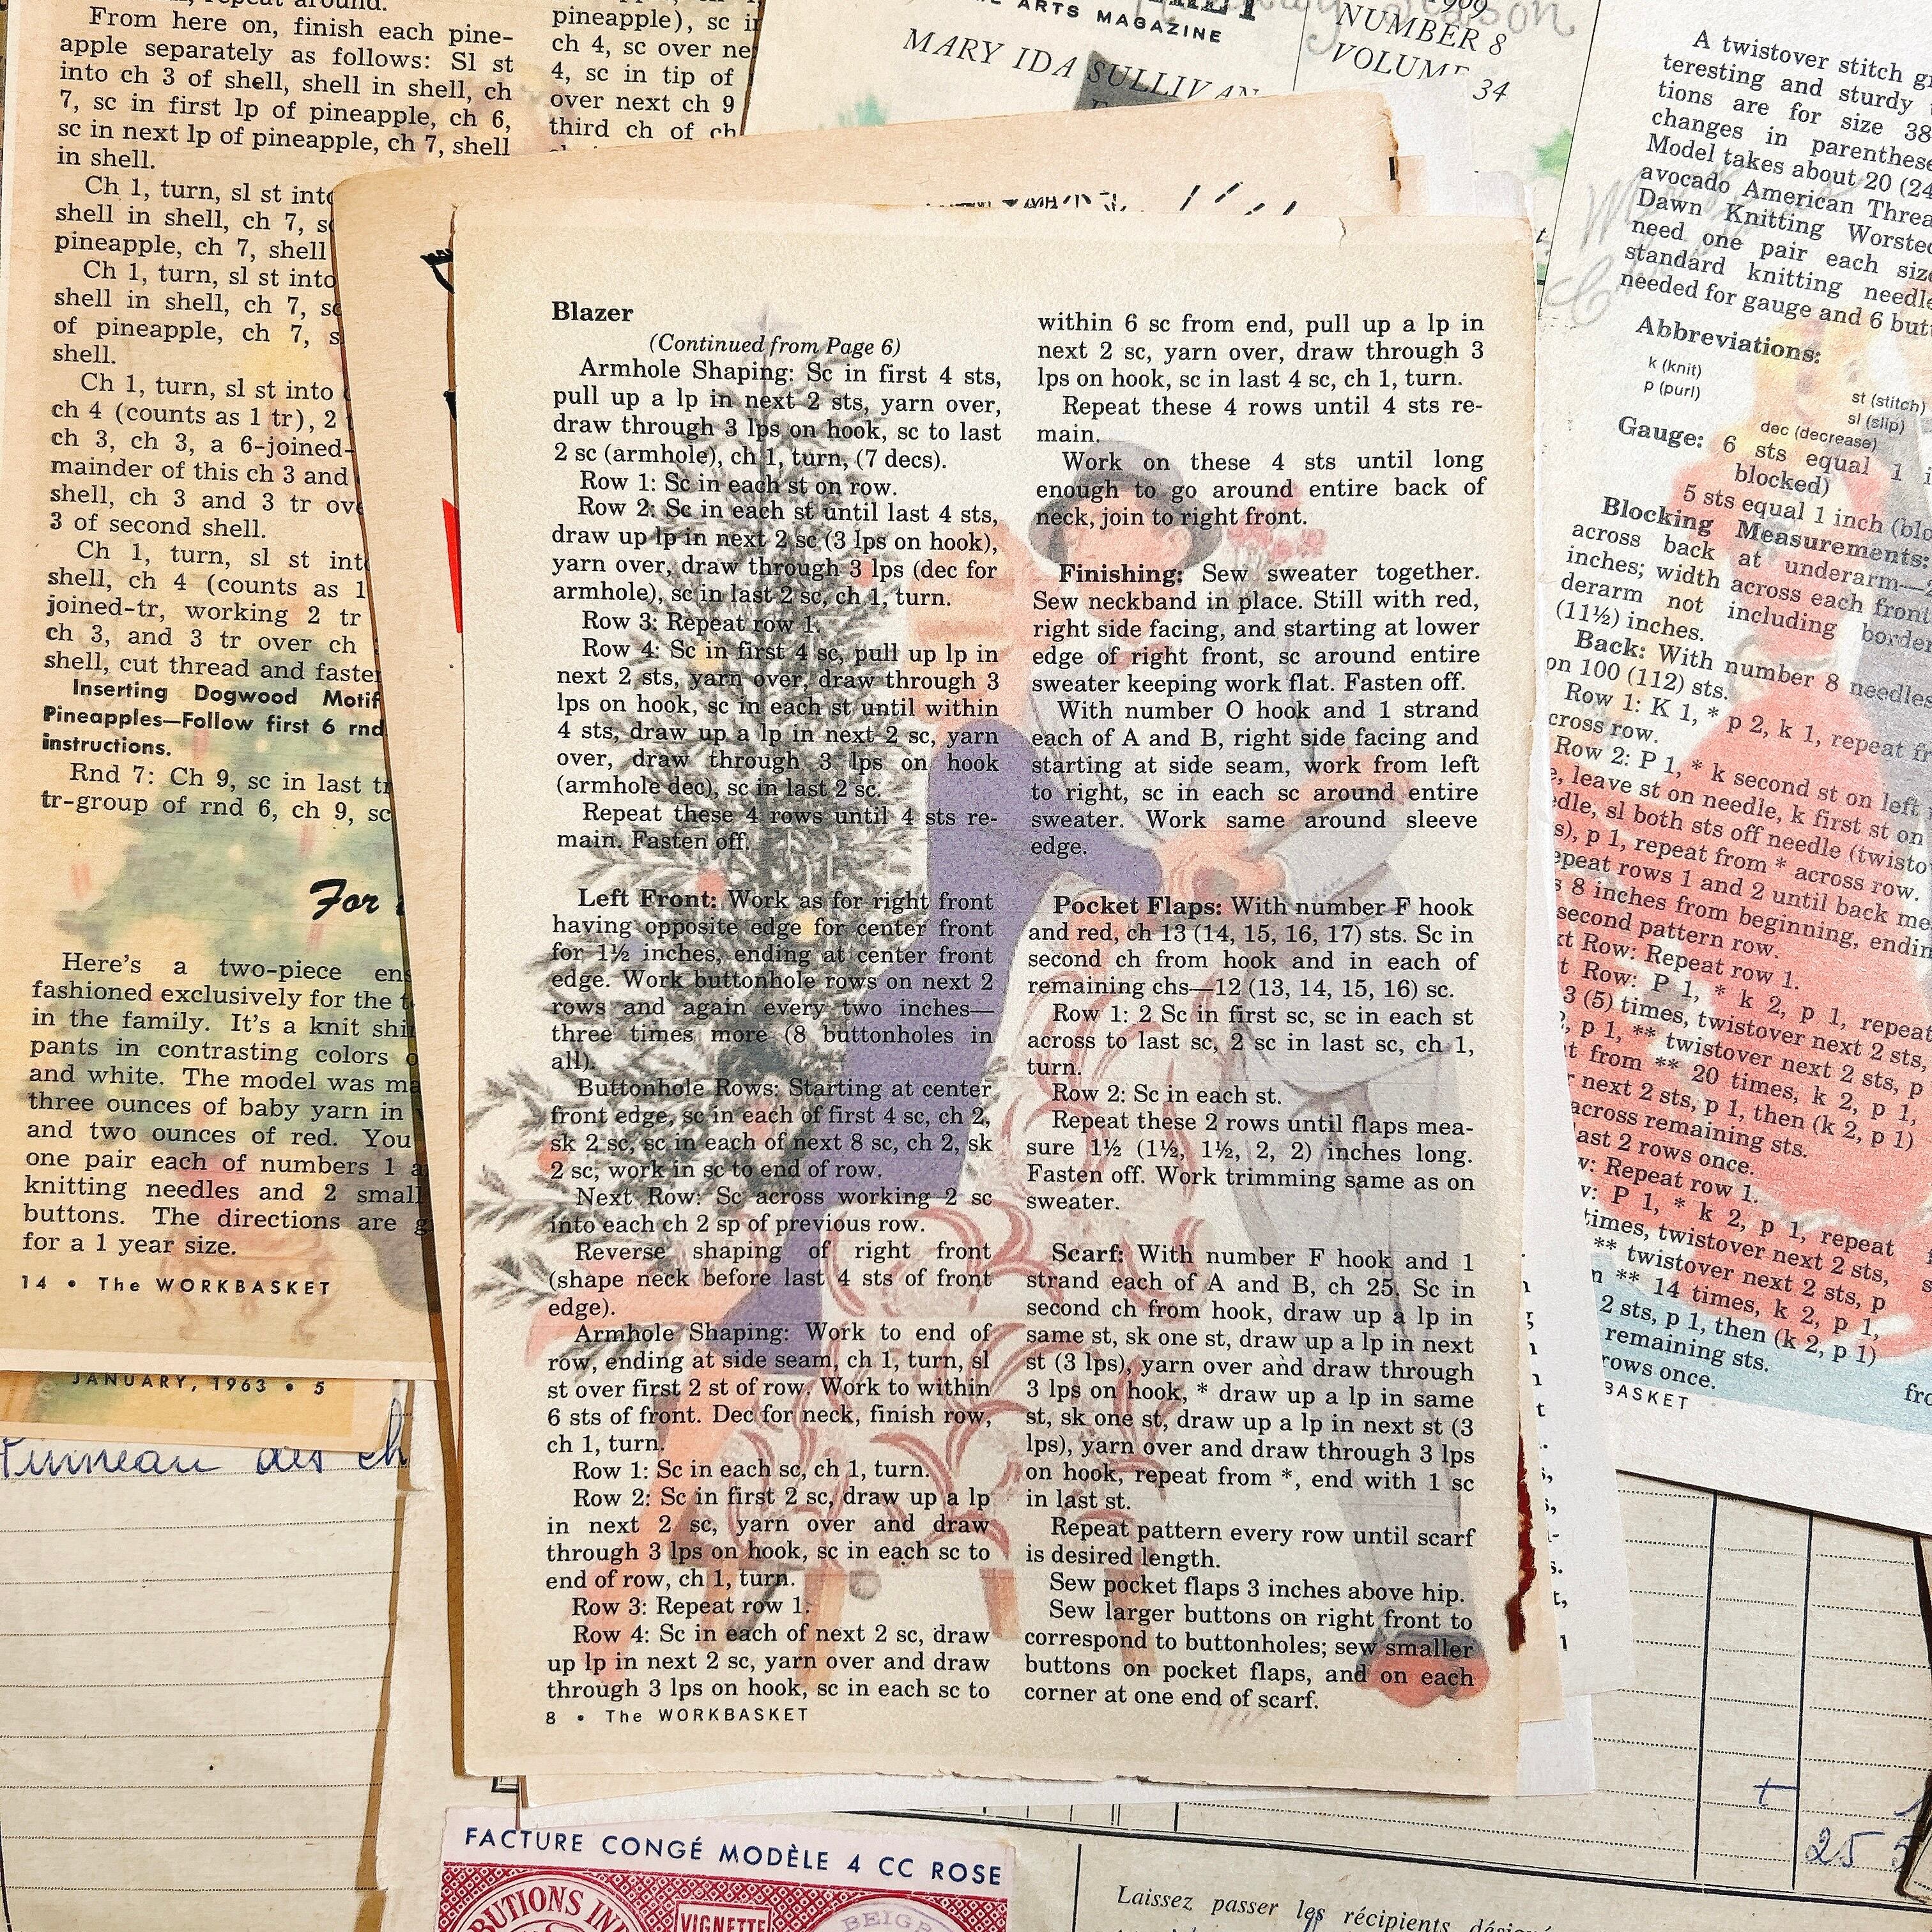 From here on, finish each pine-
apple separately as follows: Sl st
into ch 3 of shell, shell in shell, ch
7, sc in first lp of pineapple, ch 6,
sc in next lp of pineapple, ch 7, shell
in shell.
Ch 1, turn, sl st into
shell in shell, ch 7, sc
pineapple, ch 7, shell
Ch 1, turn, sl st into
shell in shell, ch 7, sc
of pineapple, ch 7,
shell.
Ch 1, turn, sl st into
ch 4 (counts as 1 tr), 2
ch 3, ch 3, a 6-joined-
mainder of this ch 3 and
shell, ch 3 and 3 tr
3 of second shell.
Ch 1, turn, sl st
shell, ch 4 (counts as 1
joined-tr, working 2 tr
ch 3, and 3 tr over ch
shell, cut thread and fasten
Inserting Dogwood Motif
Pineapples—Follow first 6
instructions.
Rnd 7: Ch 9, sc in last
tr-group of rnd 6, ch 9, sc
For
Here's a two-piece
fashioned exclusively for the
in the family. It's a knit
pants in contrasting colors
and white. The model was
three ounces of baby yarn in
and two ounces of red. You
one pair each of numbers 1
knitting needles and 2 small
buttons. The directions are
for a 1 year size.
14 • The WORKBASKET
JANUARY, 1963 • 5
pineapple), sc
ch 4, sc over
4, sc in tip of
over next ch 9
third ch of ch
ARTS MAGAZINE
MARY IDA SULLIVAN
NUMBER 8
VOLUME 34
Blazer
(Continued from Page 6)
Armhole Shaping: Sc in first 4 sts,
pull up a lp in next 2 sts, yarn over,
draw through 3 lps on hook, sc to last
2 sc (armhole), ch 1, turn, (7 decs).
Row 1: Sc in each st on row.
Row 2: Sc in each st until last 4 sts,
draw up lp in next 2 sc (3 lps on hook),
yarn over, draw through 3 lps (dec for
armhole), sc in last 2 sc, ch 1, turn.
Row 3: Repeat row 1.
Row 4: Sc in first 4 sc, pull up lp in
next 2 sts, yarn over, draw through 3
lps on hook, sc in each st until within
4 sts, draw up a lp in next 2 sc, yarn
over, draw through 3 lps on hook
(armhole dec), sc in last 2 sc.
Repeat these 4 rows until 4 sts re-
main. Fasten off.
Left Front: Work as for right front
having opposite edge for center front
for 1½ inches, ending at center front
edge. Work buttonhole rows on next 2
rows and again every two inches—
three times more (8 buttonholes in
all).
Buttonhole Rows: Starting at center
front edge, sc in each of first 4 sc, ch 2,
sk 2 sc, sc in each of next 8 sc, ch 2, sk
2 sc, work in sc to end of row.
Next Row: Sc across working 2 sc
into each ch 2 sp of previous row.
Reverse shaping of right front
(shape neck before last 4 sts of front
edge).
Armhole Shaping: Work to end of
row, ending at side seam, ch 1, turn, sl
st over first 2 st of row. Work to within
6 sts of front. Dec for neck, finish row,
ch 1, turn.
Row 1: Sc in each sc, ch 1, turn.
Row 2: Sc in first 2 sc, draw up a lp
in next 2 sc, yarn over and draw
through 3 lps on hook, sc in each sc to
end of row, ch 1, turn.
Row 3: Repeat row 1.
Row 4: Sc in each of next 2 sc, draw
up lp in next 2 sc, yarn over and draw
through 3 lps on hook, sc in each sc to
8 • The WORKBASKET
within 6 sc from end, pull up a lp in
next 2 sc, yarn over, draw through 3
lps on hook, sc in last 4 sc, ch 1, turn.
Repeat these 4 rows until 4 sts re-
main.
Work on these 4 sts until long
enough to go around entire back of
neck, join to right front.
Finishing: Sew sweater together.
Sew neckband in place. Still with red,
right side facing, and starting at lower
edge of right front, sc around entire
sweater keeping work flat. Fasten off.
With number O hook and 1 strand
each of A and B, right side facing and
starting at side seam, work from left
to right, sc in each sc around entire
sweater. Work same around sleeve
edge.
Pocket Flaps: With number F hook
and red, ch 13 (14, 15, 16, 17) sts. Sc in
second ch from hook and in each of
remaining chs—12 (13, 14, 15, 16) sc.
Row 1: 2 Sc in first sc, sc in each st
across to last sc, 2 sc in last sc, ch 1,
turn.
Row 2: Sc in each st.
Repeat these 2 rows until flaps mea-
sure 1½ (1½, 1½, 2, 2) inches long.
Fasten off. Work trimming same as on
sweater.
Scarf: With number F hook and 1
strand each of A and B, ch 25. Sc in
second ch from hook, draw up a lp in
same st, sk one st, draw up a lp in next
st (3 lps), yarn over and draw through
3 lps on hook, * draw up a lp in same
st, sk one st, draw up a lp in next st (3
lps), yarn over and draw through 3 lps
on hook, repeat from *, end with 1 sc
in last st.
Repeat pattern every row until scarf
is desired length.
Sew pocket flaps 3 inches above hip.
Sew larger buttons on right front to
correspond to buttonholes; sew smaller
buttons on pocket flaps, and on each
corner at one end of scarf.
A twistover stitch
teresting and sturdy
tions are for size 38
changes in parenthese
Model takes about 20 (24
avocado American Threa
Dawn Knitting Worsted
need one pair each size
standard knitting needle
needed for gauge and 6 but
Abbreviations:
k (knit)
p (purl)
st (stitch)
sl (slip)
dec (decrease)
Gauge: 6 sts equal 1
blocked)
5 sts equal 1 inch
Blocking Measurements:
across back at underarm—
inches; width across each front
derarm not including border
(11½) inches.
Back: With number 8 needles
on 100 (112) sts.
Row 1: K 1, * p 2, k 1, repeat
cross row.
Row 2: P 1, * k second st on left
leave st on needle, k first st on
dle, sl both sts off needle (twisto
s), p 1, repeat from * across row.
epeat rows 1 and 2 until back me
8 inches from beginning,
second pattern row.
Row: Repeat row 1.
Row: P 1, * k 2, p 1, repeat
3 (5) times, twistover next 2 sts,
p 1, ** twistover next 2 sts, p
from ** 20 times, k 2, p 1,
next 2 sts, p 1, then (k 2, p 1)
across remaining sts.
last 2 rows once.
Repeat row 1.
P 1, * k 2, p 1, repeat
times, twistover next 2 sts,
** twistover next 2 sts, p
** 14 times, k 2, p 1,
2 sts, p 1, then (k 2, p 1)
remaining sts.
rows once.
BASKET
25 5
FACTURE CONGÉ MODÈLE 4 CC ROSE
VIGNETTE
BEIGE
Laissez passer les récipients